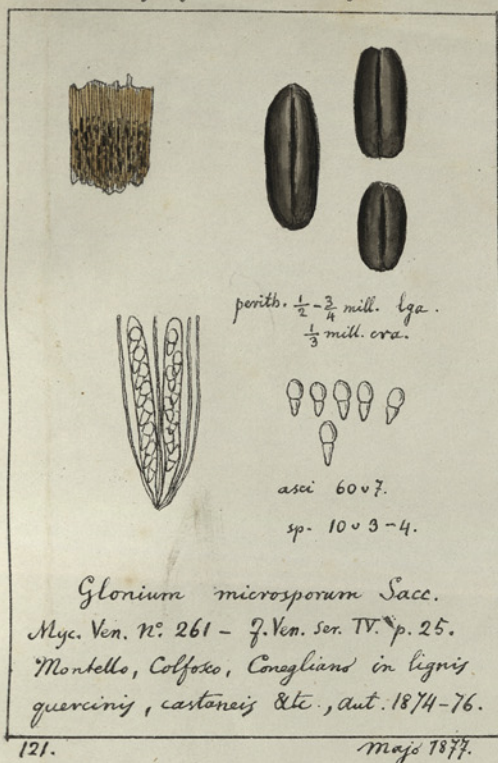 perith. 1/2 - 3/4 mill. lga.
1/3 mill. cra.
asci 60 v 7.
sp. 10 v 3-4.
Glonium microsporum Sacc.
Myc. Ven. Nº. 261 - F. Ven. Ser. IV. p. 25.
Montello, Colfosco, Conegliano in lignis
quercinis, castaneis &tc., aut. 1874-76.
121.
Majo 1877.